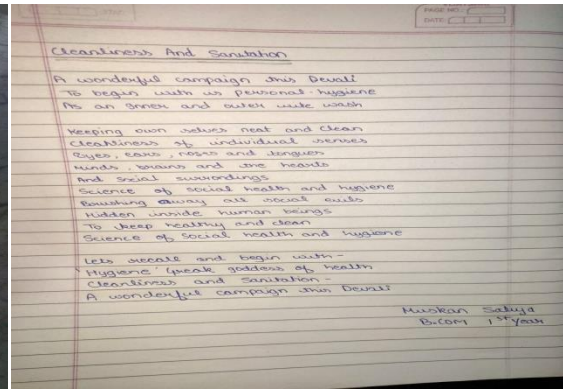 PAGE NO.
DATE
Cleanliness And Sanitation
A wonderful campaign this Devali
To begin with us personal-hygiene
As an Inner and outer wash
Keeping own selves neat and clean
Cleanliness of individual senses
Eyes, ears, noses and tongues
Minds, brains and the hearts
And Social surrondings
Science of social health and hygiene
Brushing away all social evils
Hidden inside human beings
To keep healthy and clean
Science of social health and hygiene
Lets recall and begin with-
'Hygiene' Greak goddess of health
Cleanliness and Sanitation-
A wonderful campaign this Devali
Muskan Saluja
B.COM 1st Year